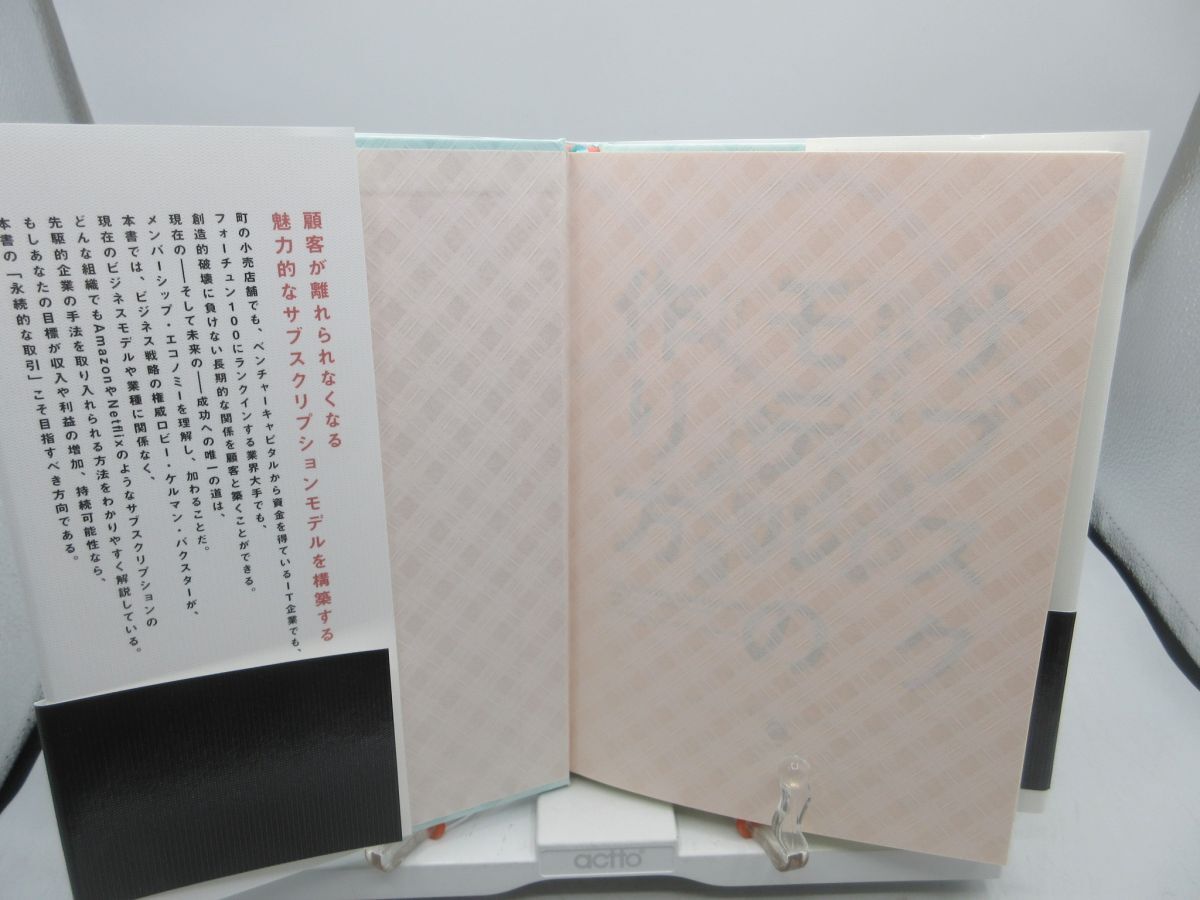 顧客が離れられなくなる
魅力的なサブスクリプションモデルを構築する
町の小売店舗でも、ベンチャーキャピタルから資金を得ているIT企業でも、
フォーチュン100にランクインする業界大手でも、
創造的破壊に負けない長期的な関係を顧客と築くことができる。
現在の――そして未来の――成功への唯一の道は、
メンバーシップ・エコノミーを理解し、加わることだ。
本書では、ビジネス戦略の権威ロビー・ケルマン・バクスターが、
現在のビジネスモデルや業種に関係なく、
どんな組織でもAmazonやNetflixのようなサブスクリプションの
先駆的企業の手法を取り入れられる方法をわかりやすく解説している。
もしあなたの目標が収入や利益の増加、持続可能性なら、
本書の「永続的な取引」こそ目指すべき方向である。
サブスク
モデルの
作り方
actto